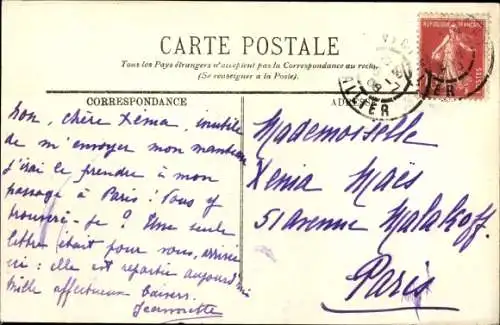 CARTE POSTALE
Tous les Pays étrangers n'acceptent pas la Correspondance au recto
(Se renseigner à la Poste).
CORRESPONDANCE
Non, chère Xénia, inutile
de m'envoyer mon manteau
j'irai le prendre à mon
passage à Paris! Vous y
trouverai-je? Une seule
lettre était pour vous, arrivée
ici: elle est repartie aujourd'hui
Mille affectueux baisers.
Jeannette
ADRESSE
Mademoiselle
Xenia Maës
51 avenue Malakoff.
Paris
REPUBLIQUE FRANÇAISE
VICHY
ALLIER